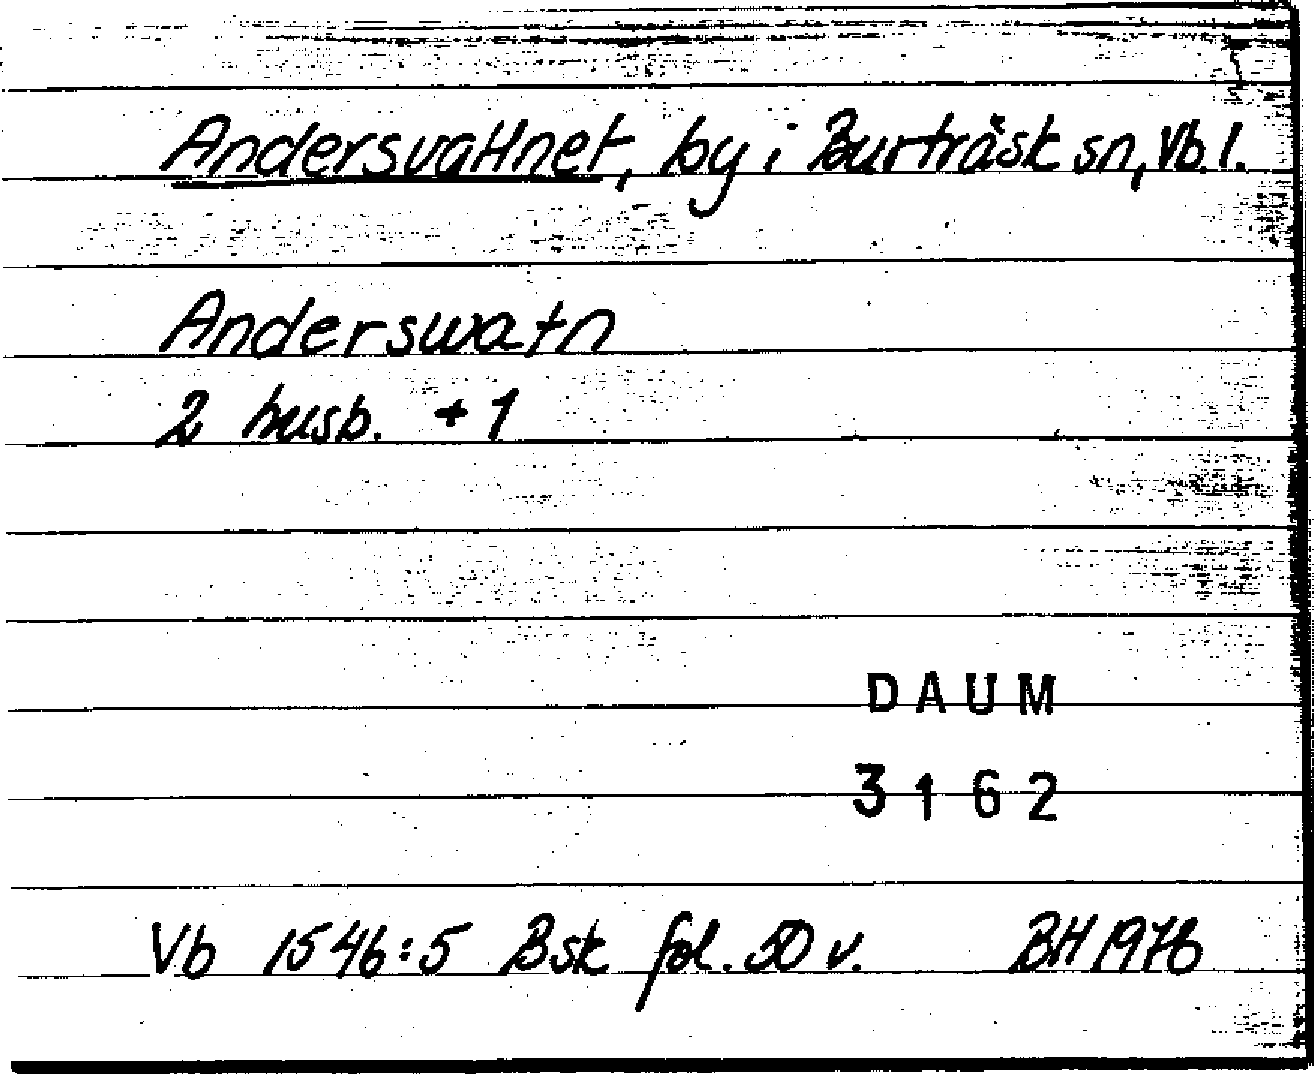 Andersvattnet, by i Burträsk sn, Vb. l.
Anderswatn
2 husb. + 1
DAUM
3162
Vb 1546:5 Bsk fol. 50 v. BH 1976